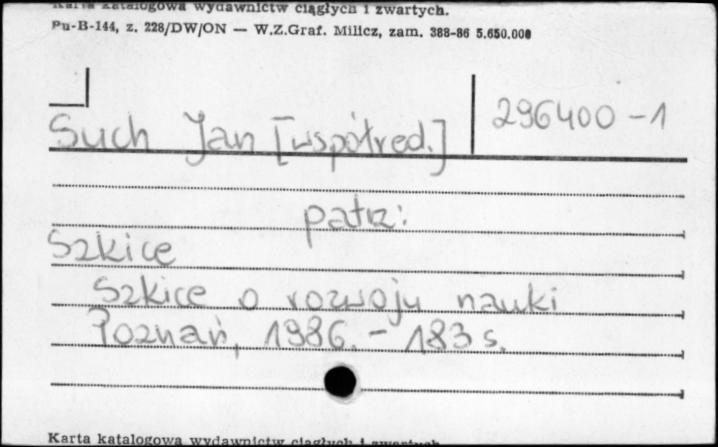 Karta katalogowa wydawnictw ciągłych i zwartych.
Pu-B-144, z. 228/DW/ON — W.Z.Graf. Milicz, zam. 388-86 5.650.000
296400-1
Such Jan [współred.]
patrz:
Szkice
Szkice o rozwoju nauki
Poznań, 1986. - 183 s.
Karta katalogowa wydawnictw ciągłych i zwartych